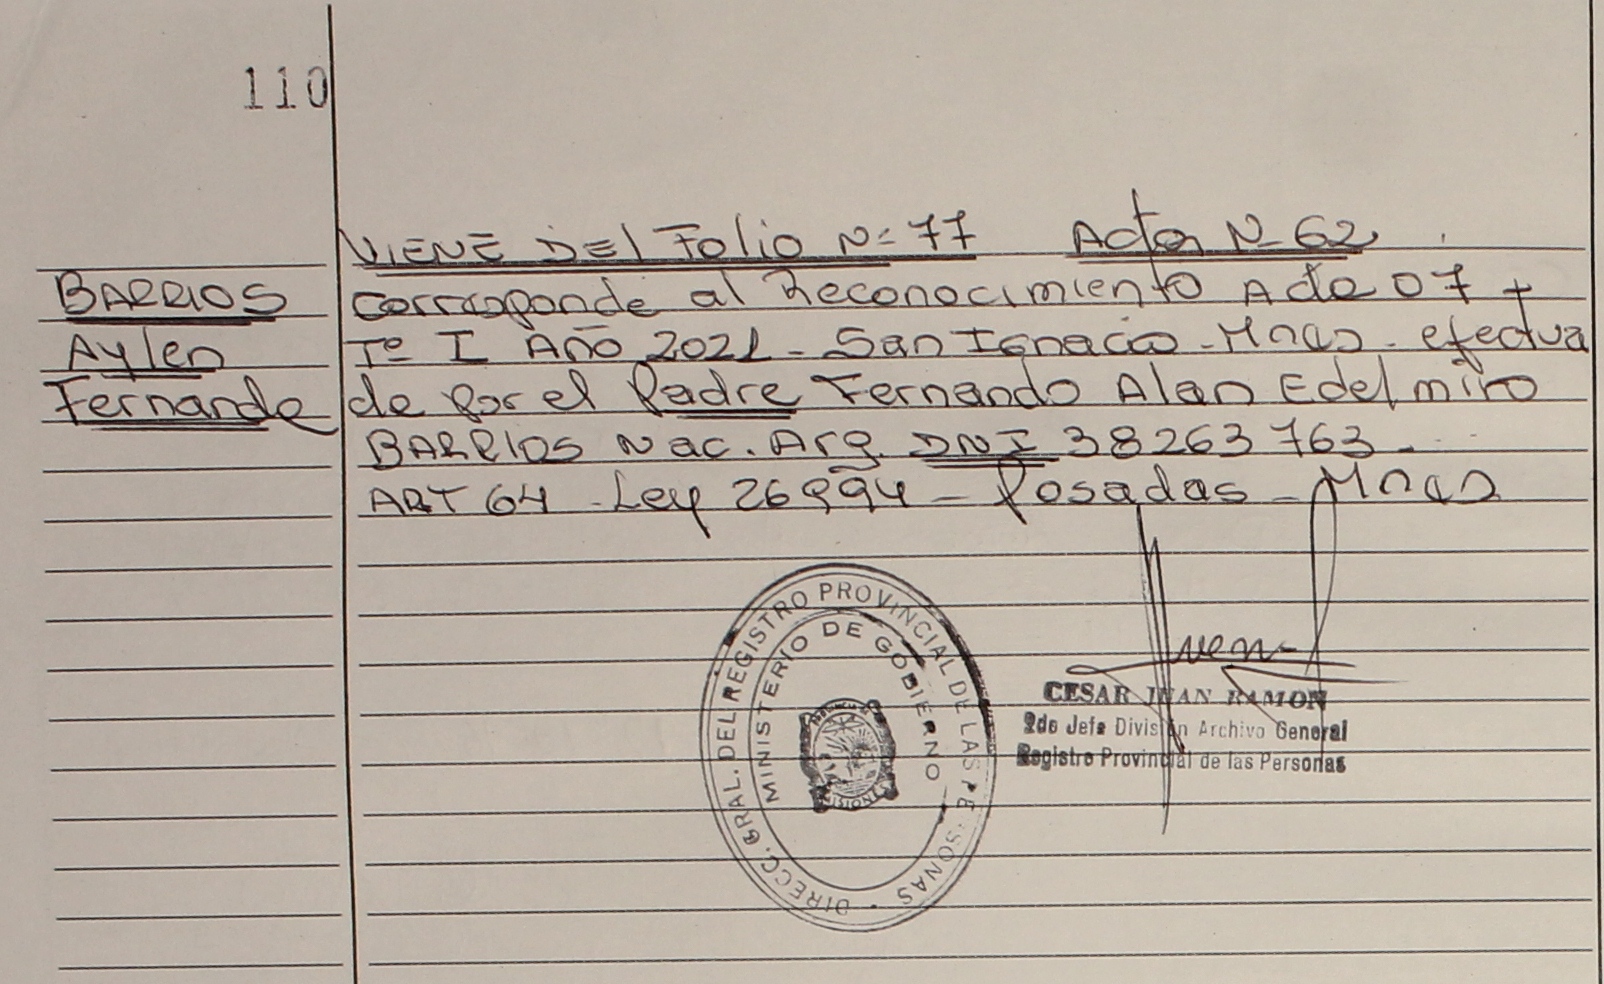 110
VIENE DEl Folio Nº 77 Acta Nº 62
BARRIOS
Aylen
Fernanda
corresponde al Reconocimiento Acta 07
Tº I Año 2021 - San Ignacio - Mnes - efectua
do por el Padre Fernando Alan Edelmiro
BARRIOS Nac. Arg. DNI 38263763 -
ART 64 - Ley 26994 - Posadas - Mnes
DIRECC. GRAL. DEL REGISTRO PROVINCIAL DE LAS PERSONAS
MINISTERIO DE GOBIERNO
MISIONES
CESAR JUAN RAMON
2do Jefe División Archivo General
Registro Provincial de las Personas